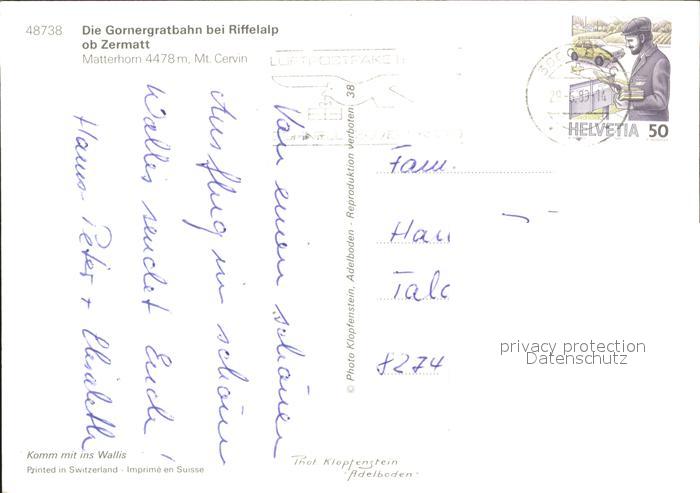 48738 Die Gornergratbahn bei Riffelalp
ob Zermatt
Matterhorn 4478 m, Mt. Cervin
LUFTPOSTPAKETE
29.-6.89-14
HELVETIA 50
Von einem schönen
Ausflug im schönen
Wallis sendet Euch!
Hans-Peter + Elisabeth
© Photo Klopfenstein, Adelboden - Reproduktion verboten 38
Fam.
Han
Talc
8274
privacy protection
Datenschutz
Komm mit ins Wallis
Printed in Switzerland - Imprimé en Suisse
Phot Klopfenstein
"Adelboden"